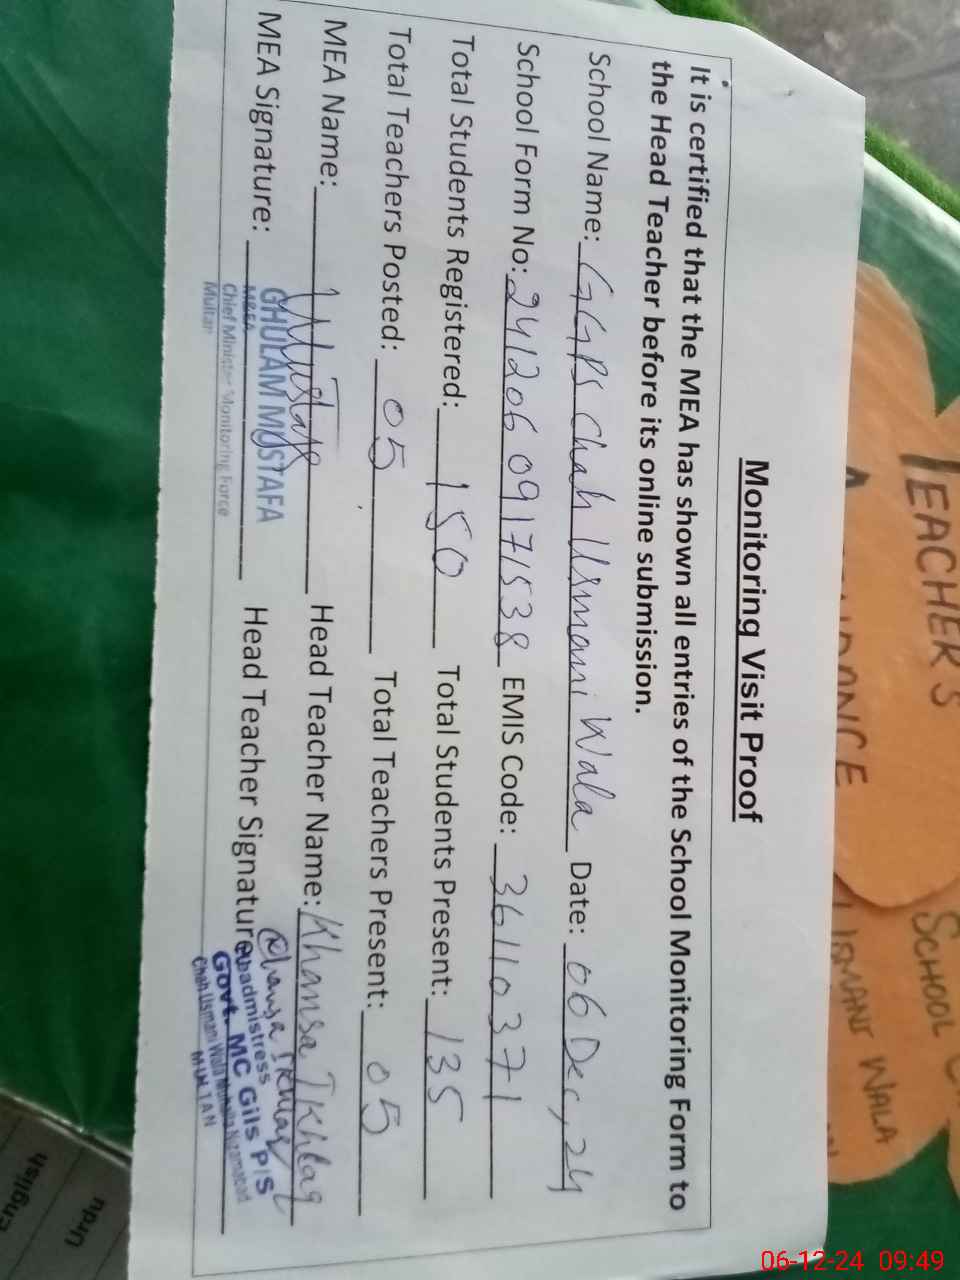 Monitoring Visit Proof
It is certified that the MEA has shown all entries of the School Monitoring Form to
the Head Teacher before its online submission.
School Name: GGPS Chah Usmani Wala Date: 06 Dec, 24
School Form No: 241206 09171538 EMIS Code: 36110371
Total Students Registered: 150 Total Students Present: 135
Total Teachers Posted: 05 Total Teachers Present: 05
MEA Name: Mustafa Head Teacher Name: Khansa Ikhlaq
MEA Signature: Head Teacher Signature
GHULAM MUSTAFA
MEA
Chief Minister Monitoring Force
Multan
Khansa Ikhlaq
Headmistress
Govt. MC Gils P/S
Chah Usmani Wala Nizamabad
MULTAN
TEACHER'S
SCHOOL
USMANI WALA
English
Urdu
06-12-24 09:49